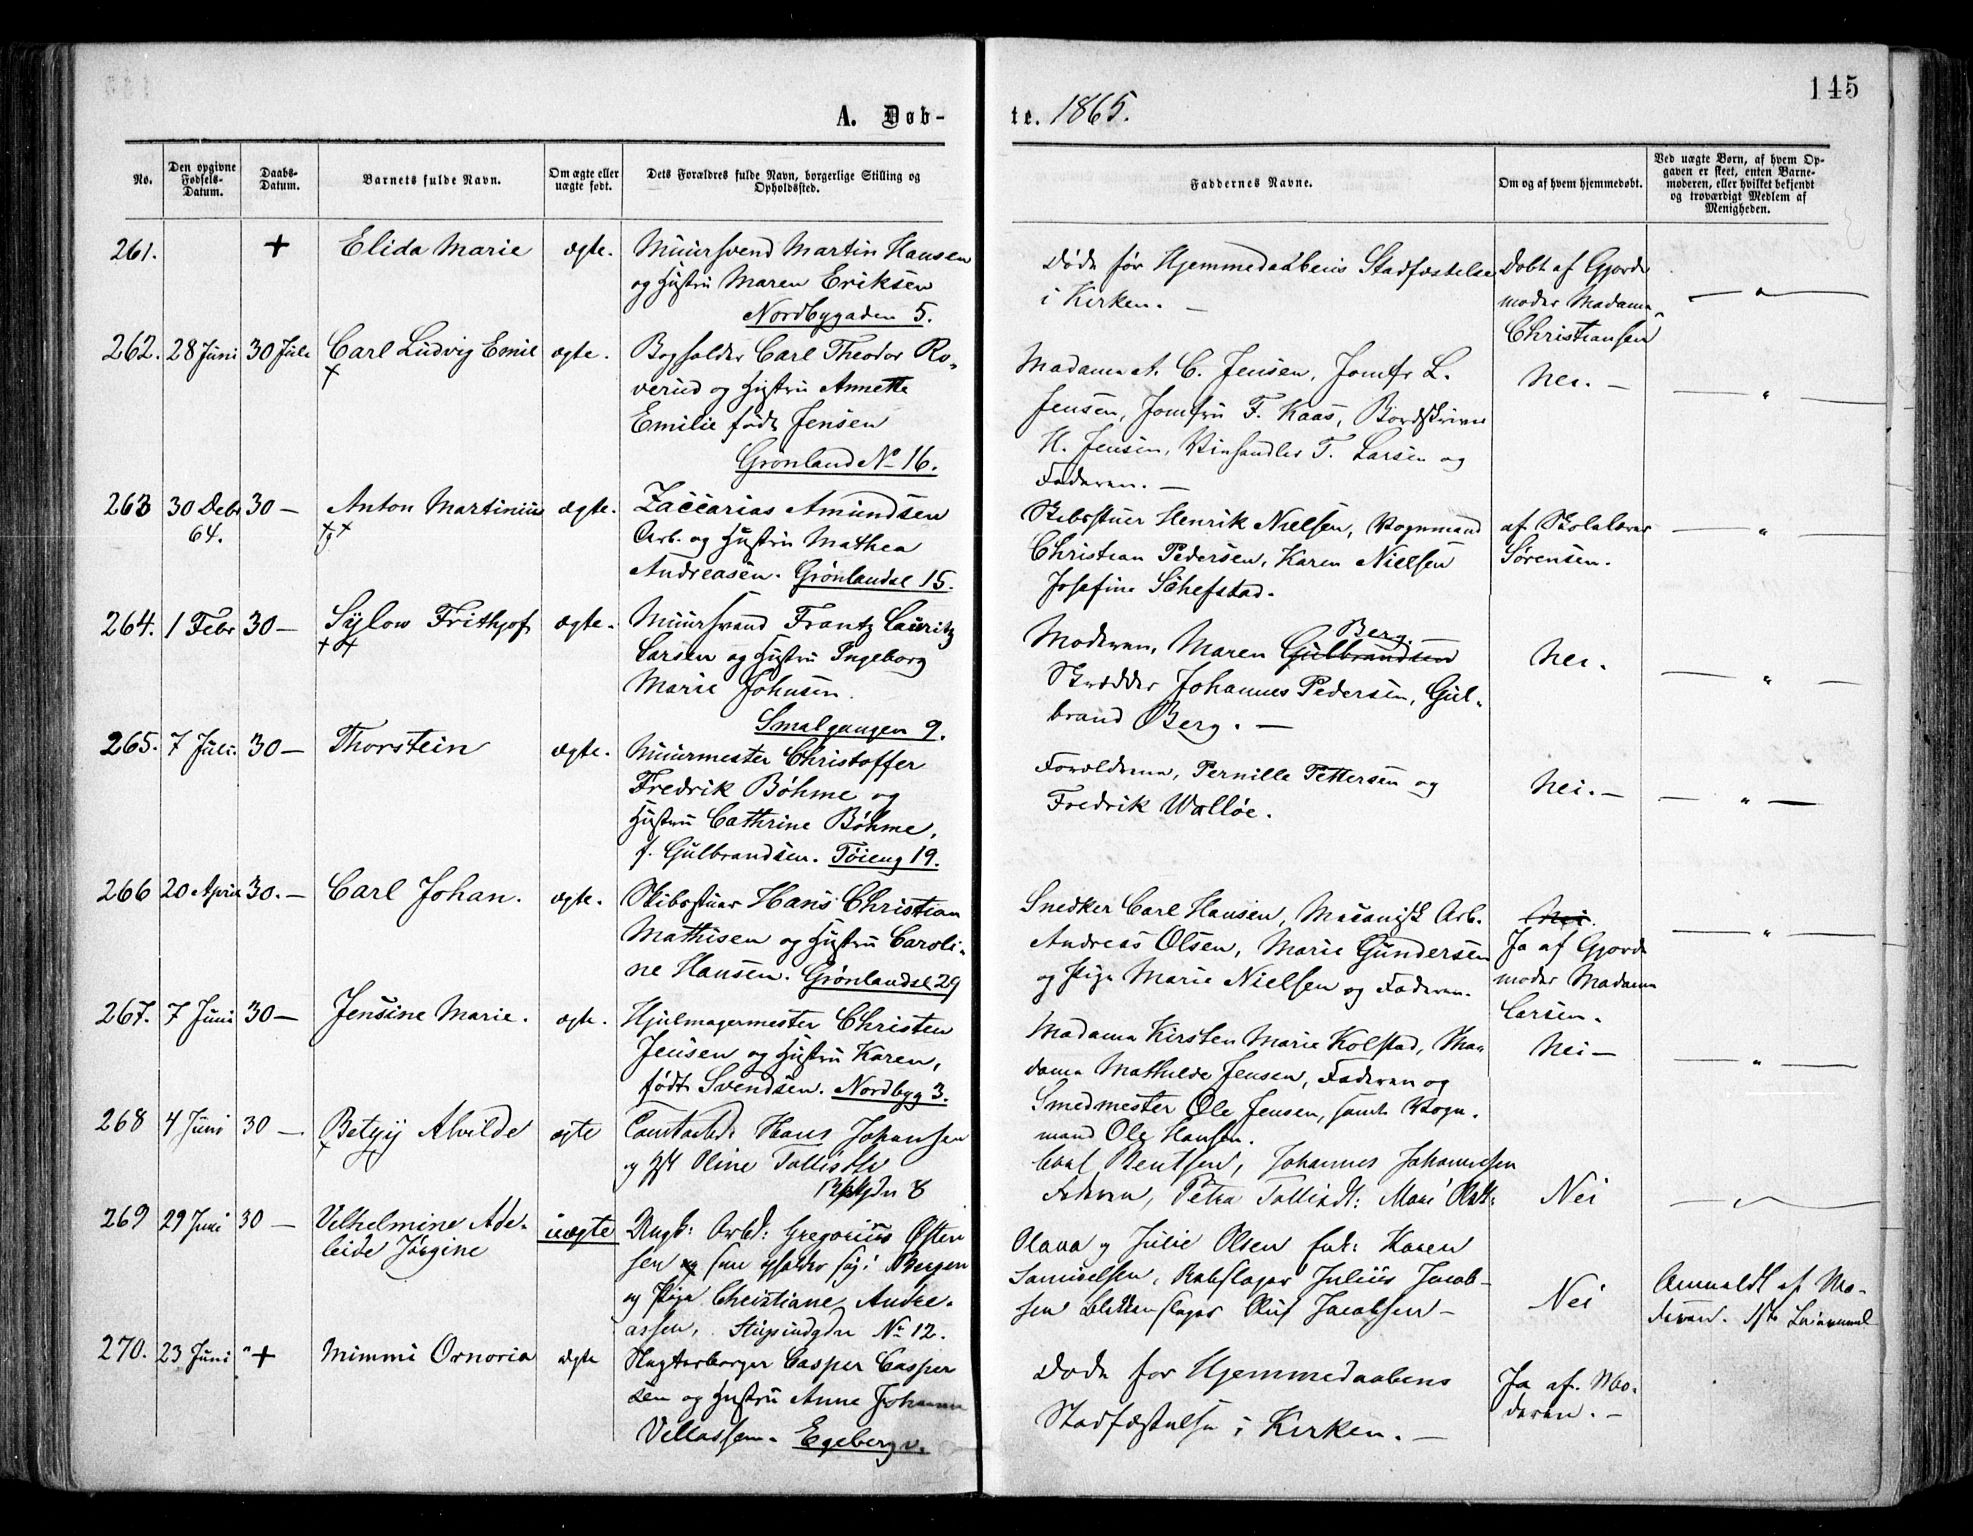 145
A. Døb-
te. 1865.
No.
Den opgivne Fødsels-Datum.
Daabs-Datum.
Barnets fulde Navn.
Om ægte eller uægte født.
Dets Forældres fulde Navn, borgerlige Stilling og Opholdssted.
Faddernes Navne.
Om og af hvem hjemmedøbt.
Ved uægte Børn, af hvem Opgaven er skeet, enten Barnemoderen, eller hvilket bekjendt og troværdigt Medlem af Menigheden.
261. + Elida Marie ægte. Muursvend Martin Hansen
og Hustru Maren Eriksen
Nordbygaden 5.
Døde før Hjemmedaabens Stadfæstelse
i Kirken. —
Døbt af Gjorde
moder Madame
Christiansen
262. 28 Juni 30 Juli Carl Ludvig Emil ægte. Bogholder Carl Theodor Ro-
verud og Hustru Annette
Emilie født Jensen
Grønland No 16.
Madame A. C. Jensen, Jomfr L.
Jensen, Jomfru F. Kaas, Bordskriver
H. Jensen, Vinhandler T. Larsen og
Faderen. —
Nei. —
263 30 Debr 30 — Anton Martinius ægte. Zaccarias Amundsen
64.
Arb. og Hustru Mathea
Andreasen. Grønlandsl 15.
Skibstuer Henrik Nielsen, Vognmand
Christian Pedersen, Karen Nielsen
Josefine Schefstad.
af Skolelærer
Sørensen.
264. 1 Febr 30 — Sylow Frithjof ægte. Muursvend Frantz Lauritz
Larsen og Hustru Ingeborg
Marie Johnsen.
Smalgangen 9.
Berg.
Moderen, Maren Gulbrandsen
Skrædder Johannes Pedersen, Gul-
brand Berg. —
Nei.
265. 7 Juli. 30 — Thorstein ægte. Muurmester Christoffer
Fredrik Bøhme og
Hustru Cathrine Bøhme,
f. Gulbrandsen. Tøieng 19.
Forældrene, Pernille Pettersen og
Fredrik Walløe.
Nei. —
266 20 April 30. — Carl Johan. ægte. Skibstuer Hans Christian
Mathisen og Hustru Caroli-
ne Hansen. Grønlandsl 29
Snedker Carl Hansen, Mecanisk Arb.
Andreas Olsen, Marie Gundersen
og Pige Marie Nielsen og Faderen.
Nei.
Ja af Gjorde
moder Madame
Larsen.
267. 7 Juni 30 — Jensine Marie. ægte. Hjulmagermester Christen
Jensen og Hustru Karen,
født Svendsen. Nordbyg 3.
Madame Kirsten Marie Kolstad, Ma-
dame Mathilde Jensen, Faderen og
Smedmester Ole Jensen, samt Vogn-
mand Ole Hansen.
Nei —
268 4 Juni 30 — Betzy Alvilde ægte Hans Johansen
og Oline
8
Bentsen, Johannes Johannesen
Faderen, Petra
Nei
269 29 Juni 30 — Vilhelmine Ade-
leide Jørgine
uægte
Ungk: Arbd: Gregorius Østen
sen og
og Pige Christiane Andre-
assen, No 12.
Olava og Julie Olsen Karen
Samuelsen, Rebslager Julius Jacob-
sen Blikkenslager Oluf Jacobsen —
Nei
Anmeldt af Mo-
deren.
270. 23 Juni " + Mimmi Ornoria ægte Casper Casper
sen og Hustru Anne Johanne
Vellassen. Egebergv.
Døde før Hjemmedaabens
Stadfæstelse i Kirken. —
Ja af Mo-
deren. —